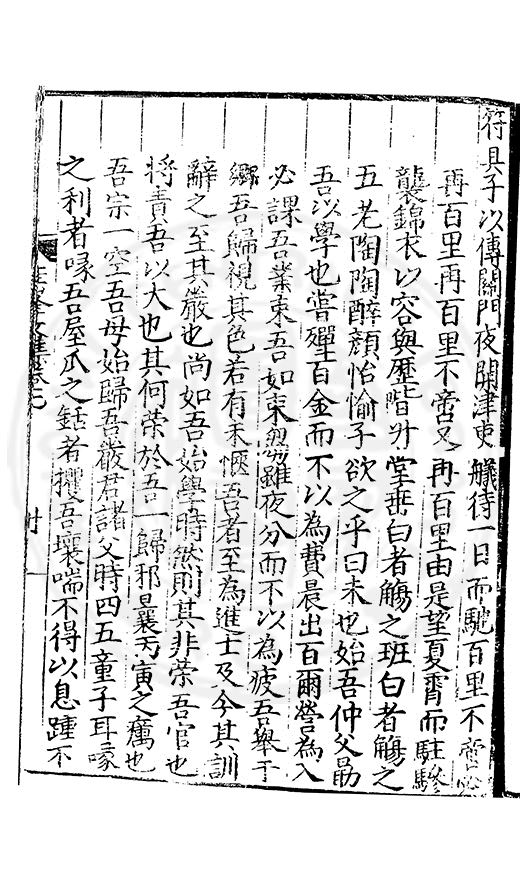 符具子以傳關門夜開津吏艤待一日而馳百里不啻
再百里再百里不啻又再百里由是望夏霄而駐驂
襲錦衣以容與歷階升堂垂白者觴之班白者觴之
五老陶陶醉顏怡愉子欲之乎曰未也始吾仲父勗
吾以學也嘗殫百金而不以為費晨出百爾營為入
必課吾業束吾如束芻雖夜分而不以為疲吾舉于
鄉吾歸視其色若有未愜吾者至為進士及今其訓
辭之至其嚴也尚如吾始學時然則其非榮吾官也
將責吾以大也其何榮於吾一歸邪曩丙寅之癘也
吾宗一空吾母始歸吾嚴君諸父時四五童子耳喙
之利者喙吾屋爪之銛者攫吾壤喘不得以息踵不